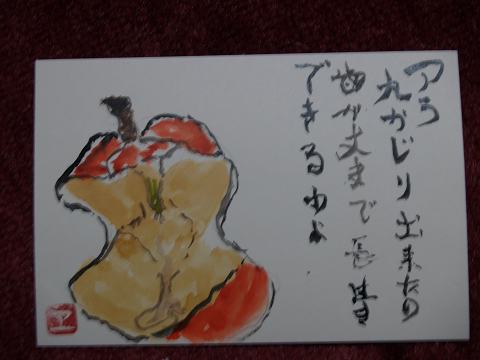 アラ
丸かじり出来たの
歯が丈まで長寿
できるわよ